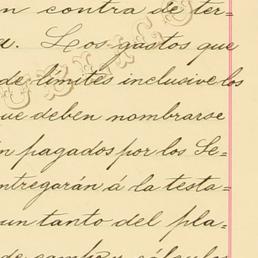 n contra de ter=
a. Los gastos que
de límites inclusive los
ue deben nombrarse
n pagados por los Se=
ntregarán á la testa=
un tanto del pla=
de campo y cálculos